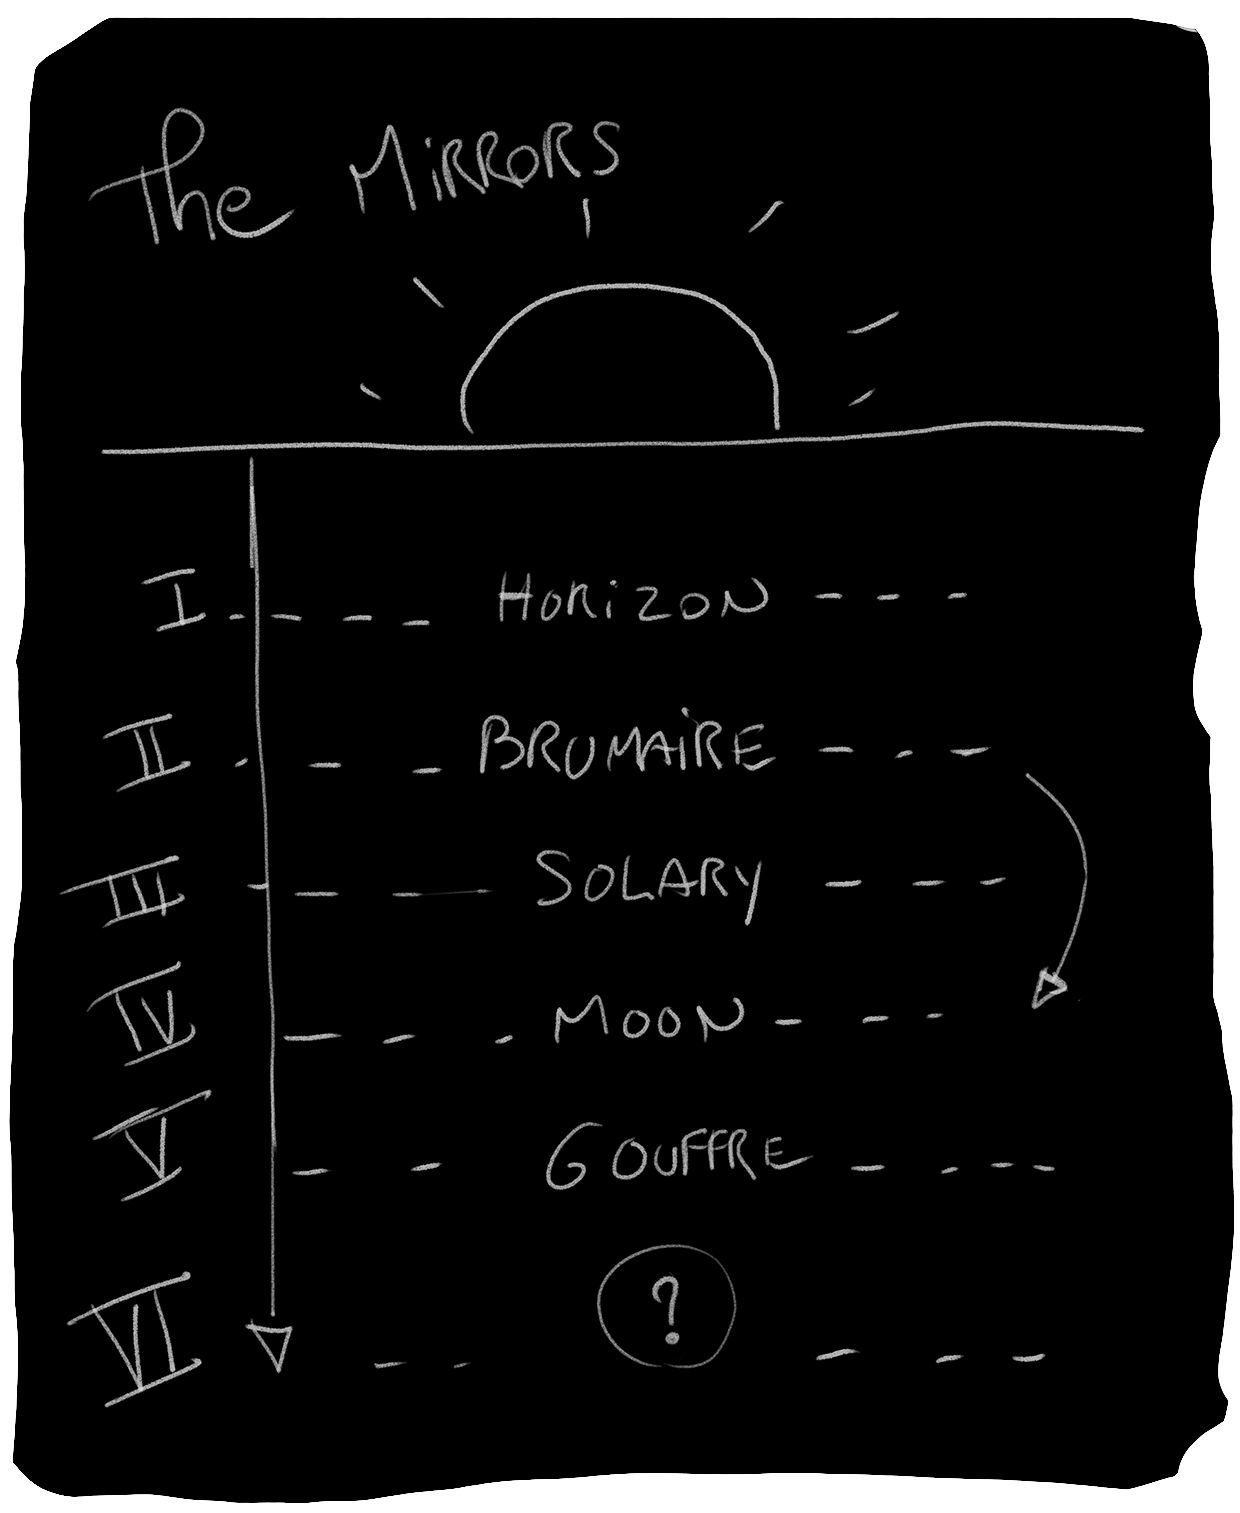 The MiRRORS
I HORiZON
II BRUMAiRE
III SOLARY
IV MOON
V GOUFFRE
VI ?